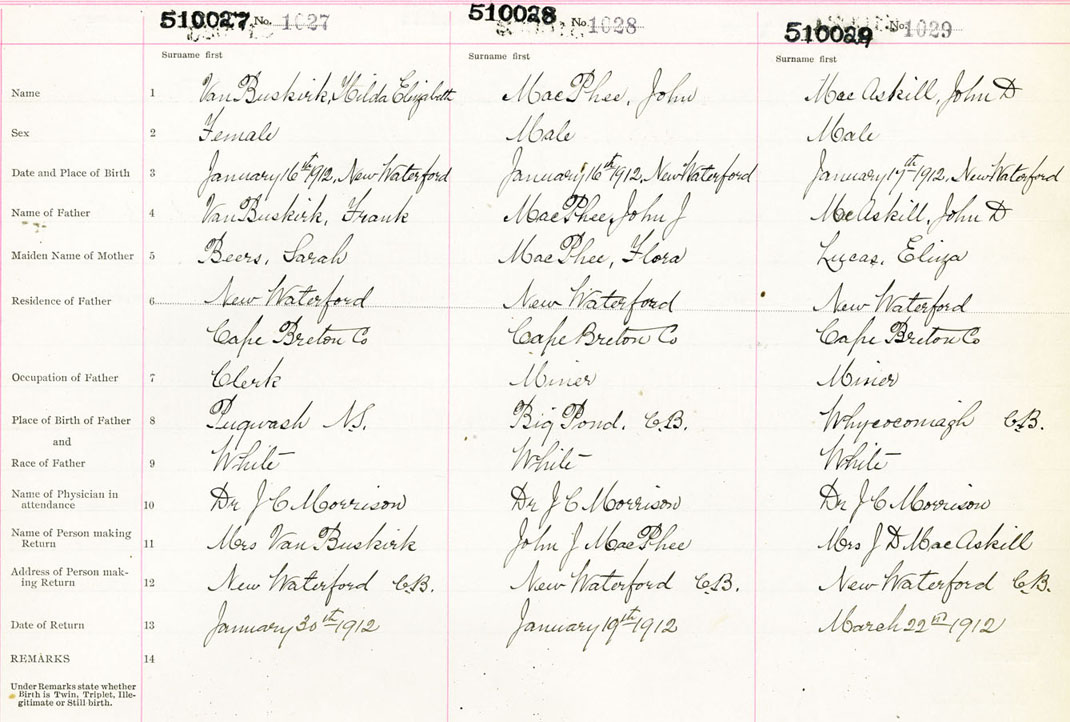 510027 No. 1027 510028 No. 1028 510029 No. 1029
Surname first Surname first Surname first
Name 1 Van Buskirk, Hilda Elizabeth MacPhee, John MacAskill, John D
Sex 2 Female Male Male
Date and Place of Birth 3 January 16th 1912, New Waterford January 16th 1912, New Waterford January 17th 1912, New Waterford
Name of Father 4 Van Buskirk, Frank MacPhee, John J McAskill, John D
Maiden Name of Mother 5 Beers, Sarah MacPhee, Flora Lucas, Eliza
Residence of Father 6 New Waterford New Waterford New Waterford
Cape Breton Co Cape Breton Co Cape Breton Co
Occupation of Father 7 Clerk Miner Miner
Place of Birth of Father 8 Pugwash N.S. Big Pond. C.B. Whycocomagh C.B.
and
Race of Father 9 White White White
Name of Physician in
attendance 10 Dr J C Morrison Dr J C Morrison Dr J C Morrison
Name of Person making
Return 11 Mrs Van Buskirk John J MacPhee Mrs J D MacAskill
Address of Person mak-
ing Return 12 New Waterford C.B. New Waterford C.B. New Waterford C.B.
Date of Return 13 January 30th 1912 January 19th 1912 March 22nd 1912
REMARKS 14
Under Remarks state whether
Birth is Twin, Triplet, Ille-
gitimate or Still birth.